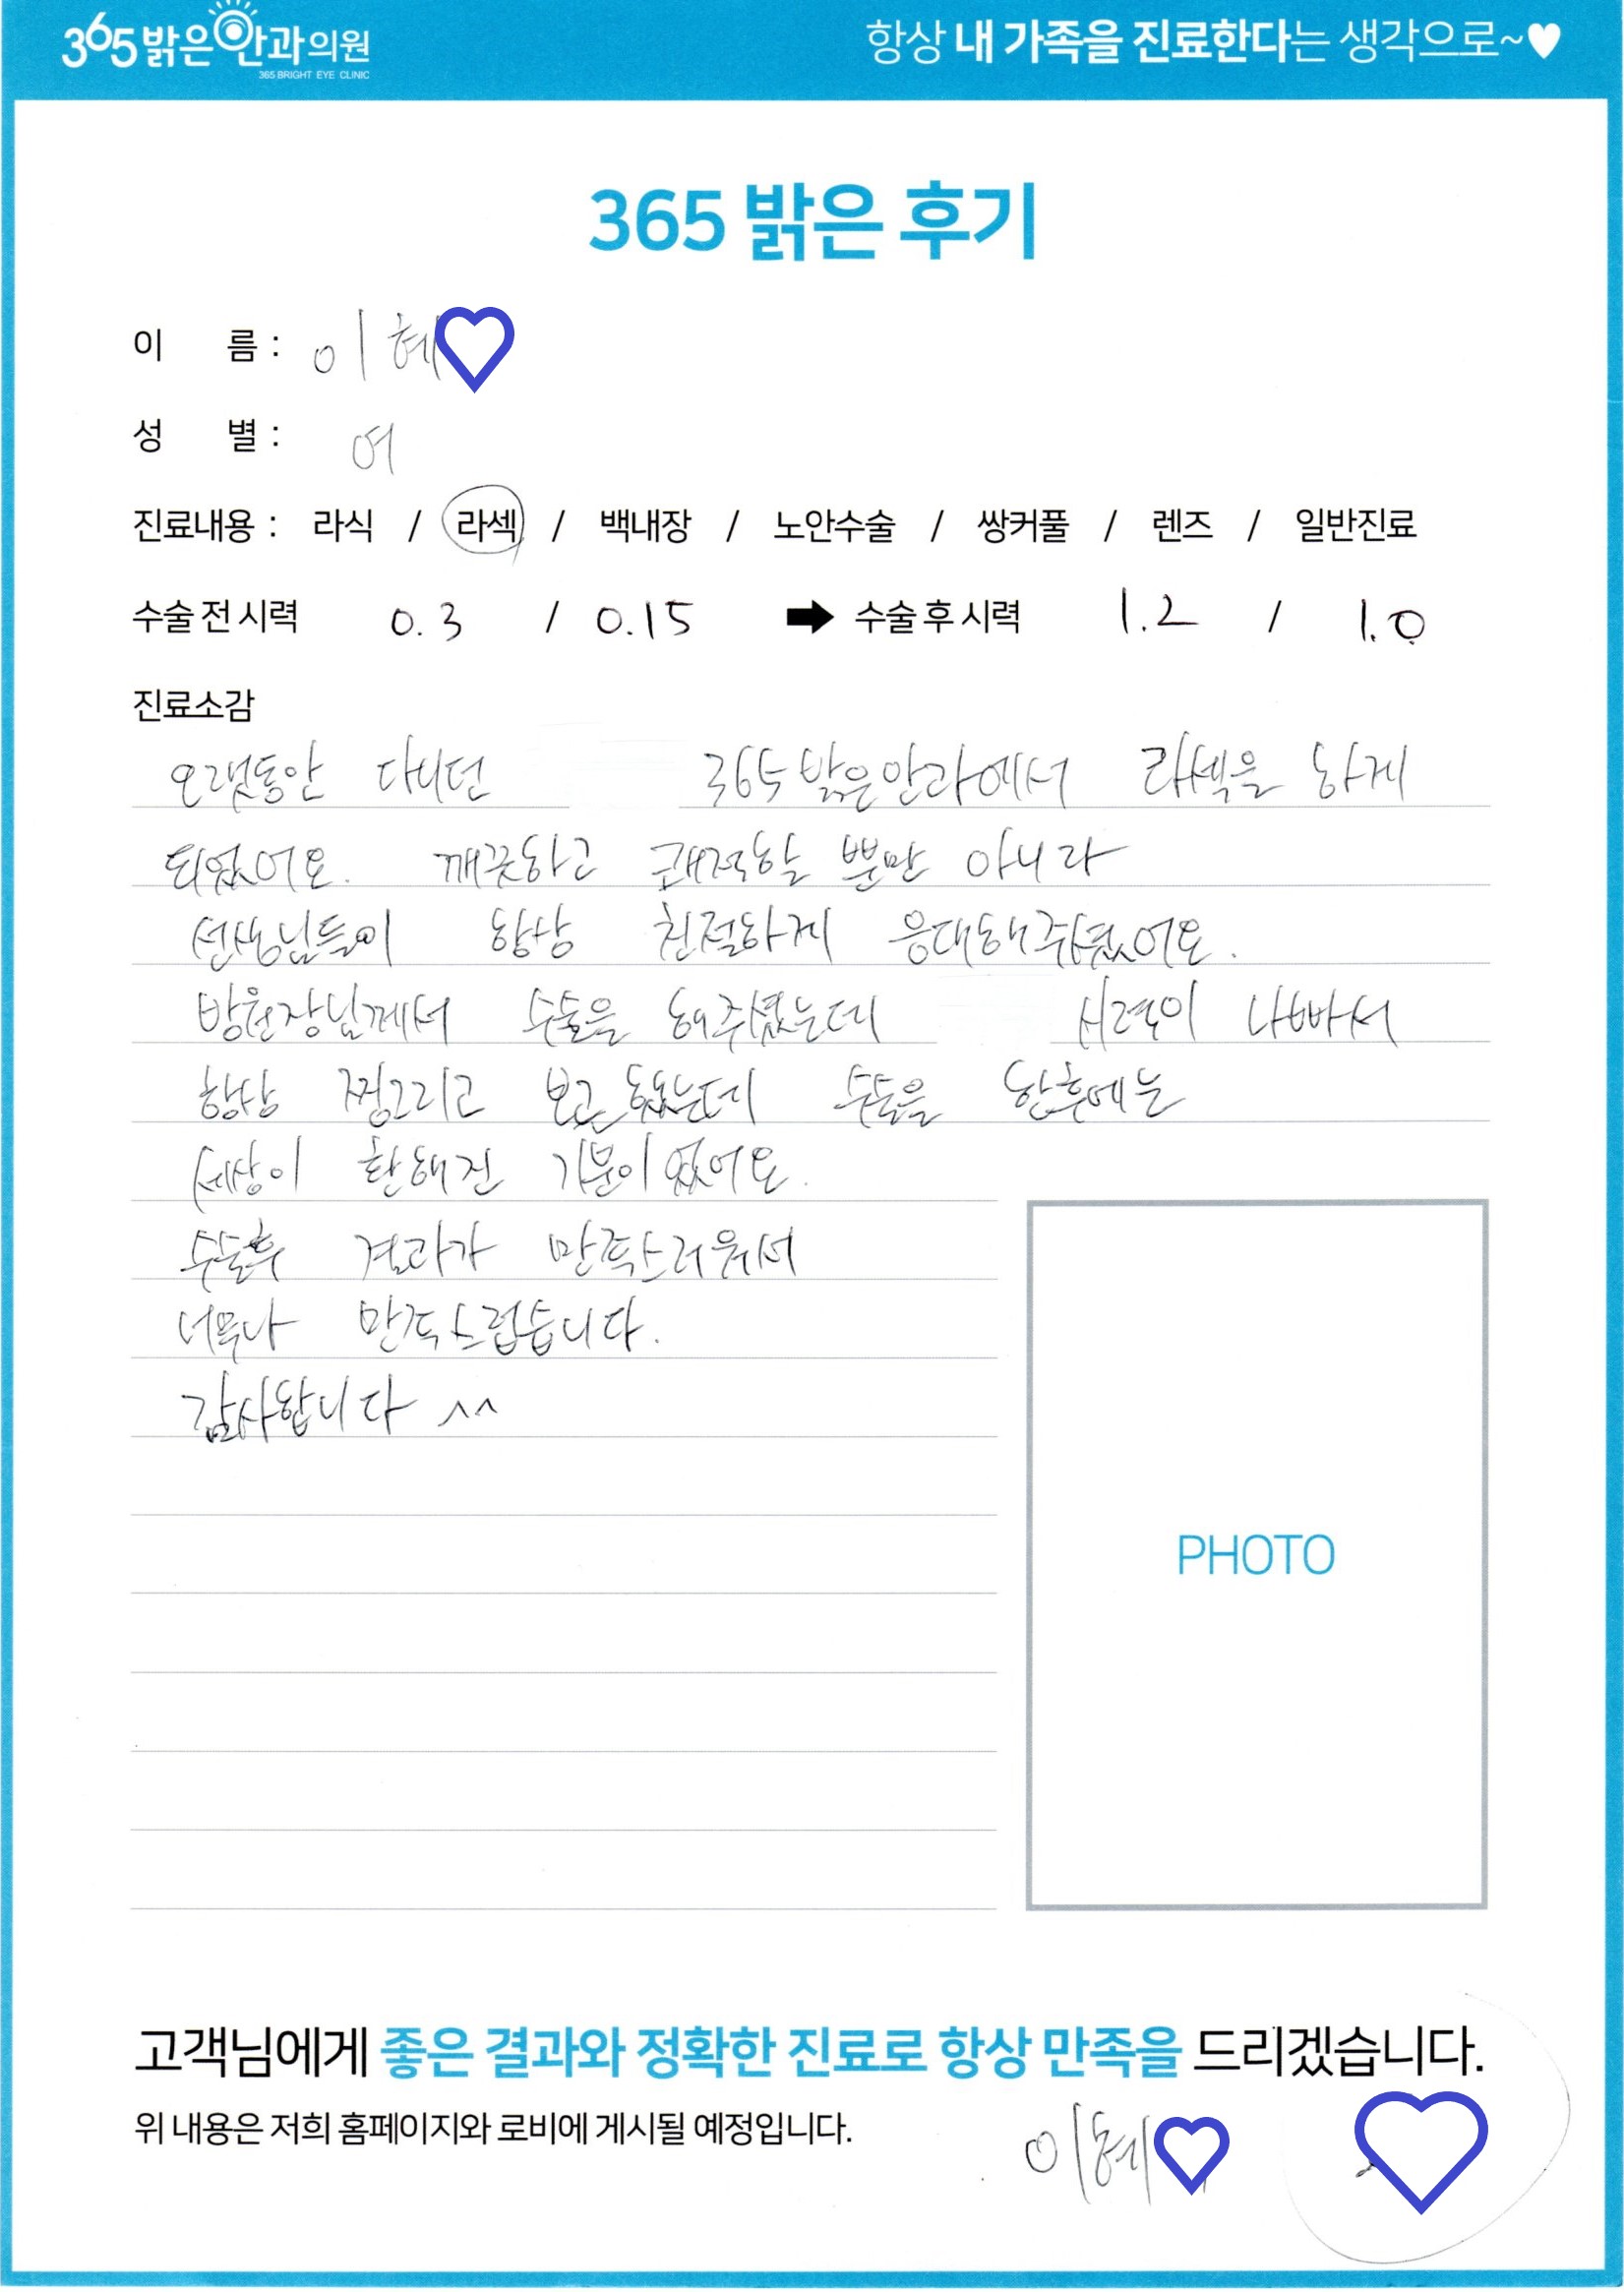 365밝은안과의원
365 BRIGHT EYE CLINIC
항상 내 가족을 진료한다는 생각으로~♥
365 밝은 후기
이 름 : 이혜
성 별 : 여
진료내용 : 라식 / 라섹 / 백내장 / 노안수술 / 쌍커풀 / 렌즈 / 일반진료
수술 전 시력 0.3 / 0.15 ➡ 수술 후 시력 1.2 / 1.0
진료소감
오랫동안 다니던 365밝은안과에서 라섹을 하게
되었어요. 깨끗하고 쾌적할 뿐만 아니라
선생님들이 항상 친절하게 응대해주셨어요.
방원장님께서 수술을 해주셨는데 시력이 나빠서
항상 찡그리고 보곤 했는데 수술을 한후에는
세상이 환해진 기분이었어요.
수술후 결과가 만족스러워서
너무나 만족스럽습니다.
감사합니다 ^^
PHOTO
고객님에게 좋은 결과와 정확한 진료로 항상 만족을 드리겠습니다.
위 내용은 저희 홈페이지와 로비에 게시될 예정입니다.
이혜